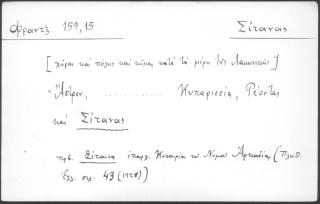 Φραντζ. 159,15 Σίτανας
[χώραι καὶ πόλεις καὶ κῶμαι κατὰ τὰ μέρη τῆς Λακωνικῆς]
Ἄστρον, .......... Κυπαρισσία, Ρέοντας
καὶ Σίταινας
πρβ. Σίταινα ἐπαρχ. Κυνουρίας τοῦ Νομοῦ Ἀρκαδίας (Πληθ.
Ἑλλ. σελ. 43 (1928)